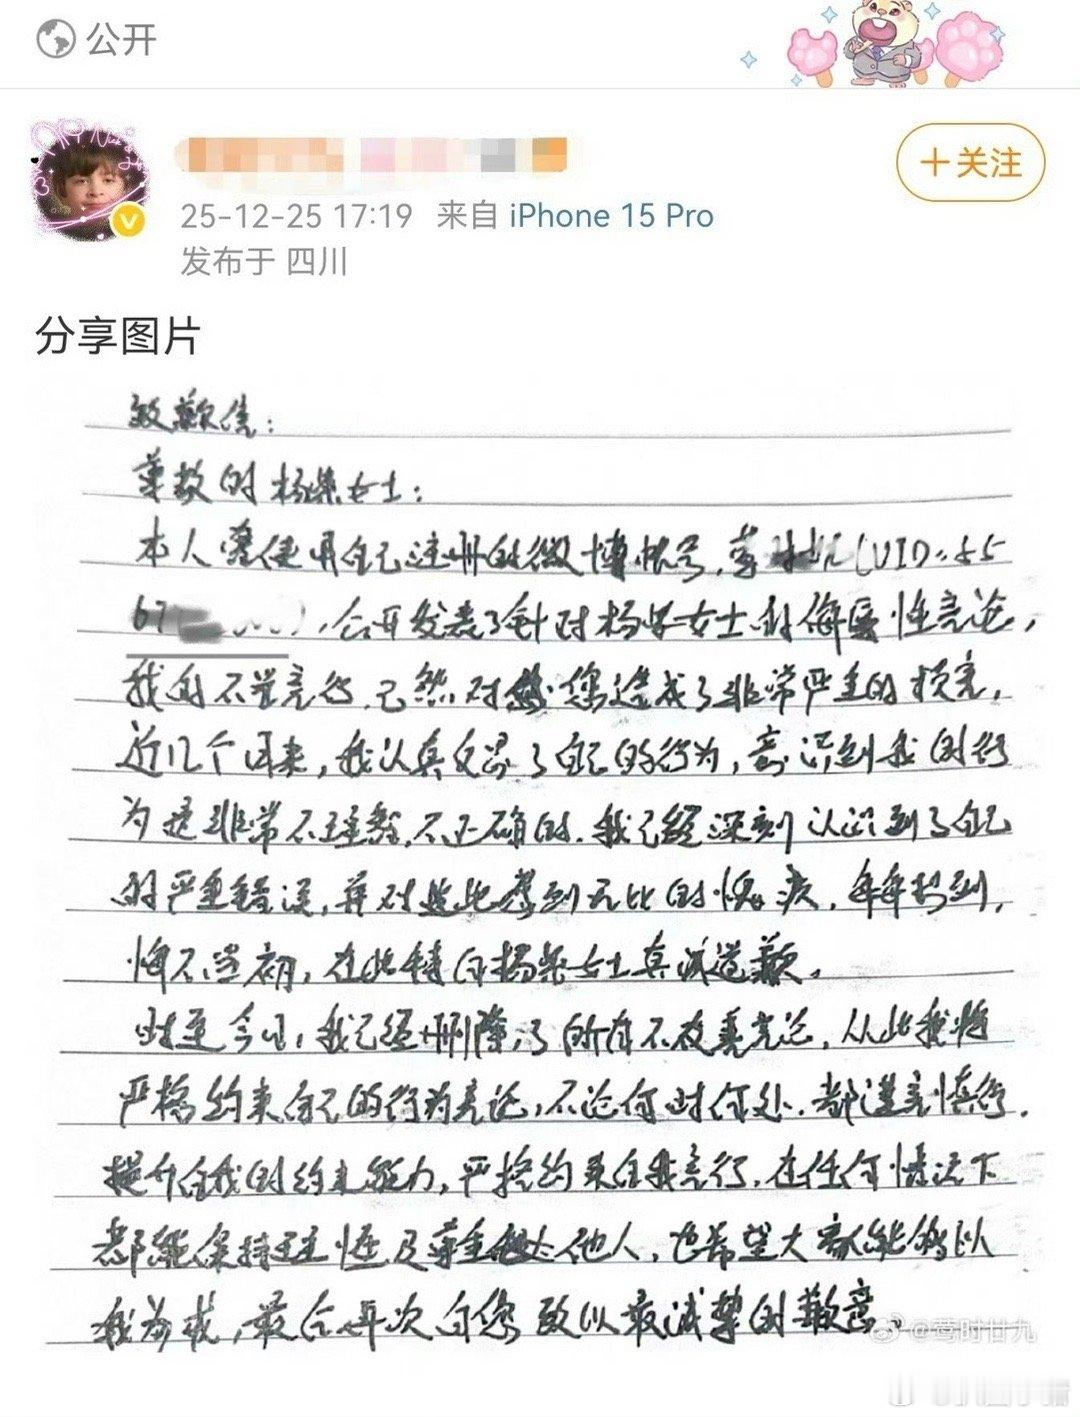 公开
+关注
25-12-25 17:19 来自 iPhone 15 Pro
发布于 四川
分享图片
致歉信：
尊敬的杨紫女士：
本人曾使用自己注册的微博帐号，(UID：55
67)，公开发表了针对杨紫女士的侮辱性言论，
我的不当言行，已然对您造成了非常严重的损害。
近几个月来，我认真反思了自己的行为，意识到我的行
为是非常不理智，不正确的。我已经深刻认识到了自己
的严重错误，并对此感到无比的愧疚，每每想到，
悔不当初，在此特向杨紫女士真诚道歉。
时至今日，我已经删除了所有不友善言论，从此我将
严格约束自己的行为言论，不论何时何处，都谨言慎行。
提升自我的约束能力，严格约束自我言行，在任何情况下
都能保持理性及尊重他人，也希望大家能够以
我为戒，最后再次向您致以最诚挚的歉意。
@莺时廿九